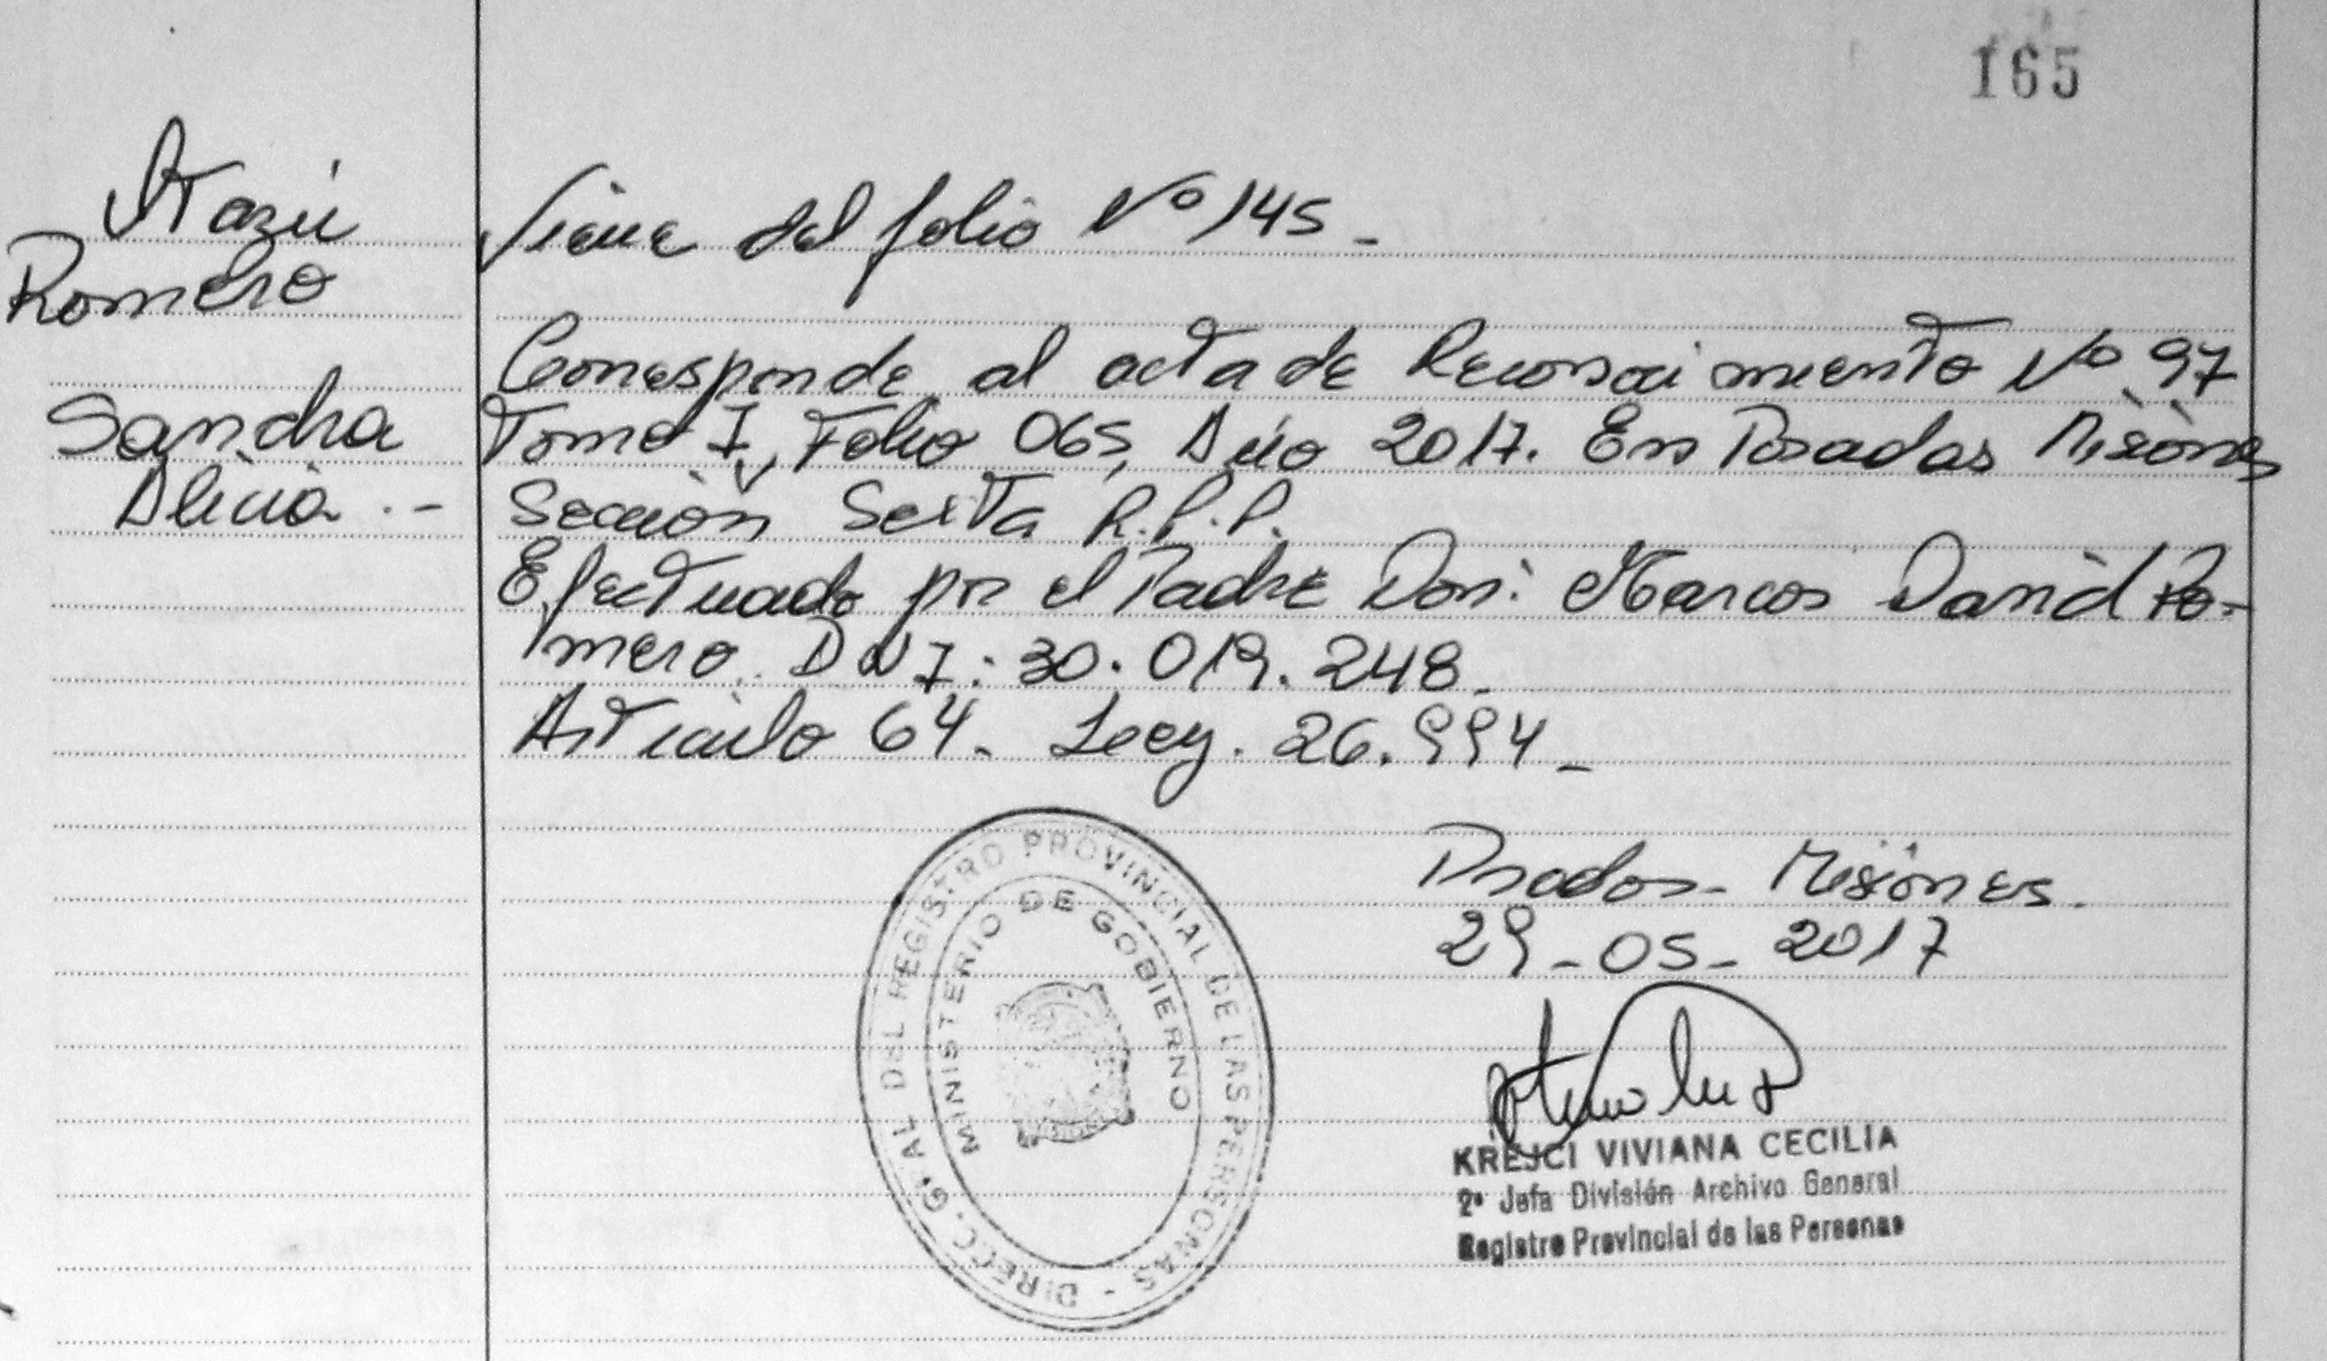 165
Itazú
Romero
Sandra
Alicia .-
Viene del folio Nº 145 -
Corresponde al acta de Reconocimiento Nº 97
Tomo I, Folio 065, Año 2017. En Posadas Misiones
Sección Sexta R.P.P.
Efectuado por el Padre Don: Marcos David Ro-
mero. DNI: 30.019.248.
Artículo 64. Ley. 26.994 -
Posadas - Misiones.
29-05-2017
DIRECC. GRAL DEL REGISTRO PROVINCIAL DE LAS PERSONAS -
MINISTERIO DE GOBIERNO
KREJCI VIVIANA CECILIA
2ª Jefa División Archivo General
Registro Provincial de las Personas